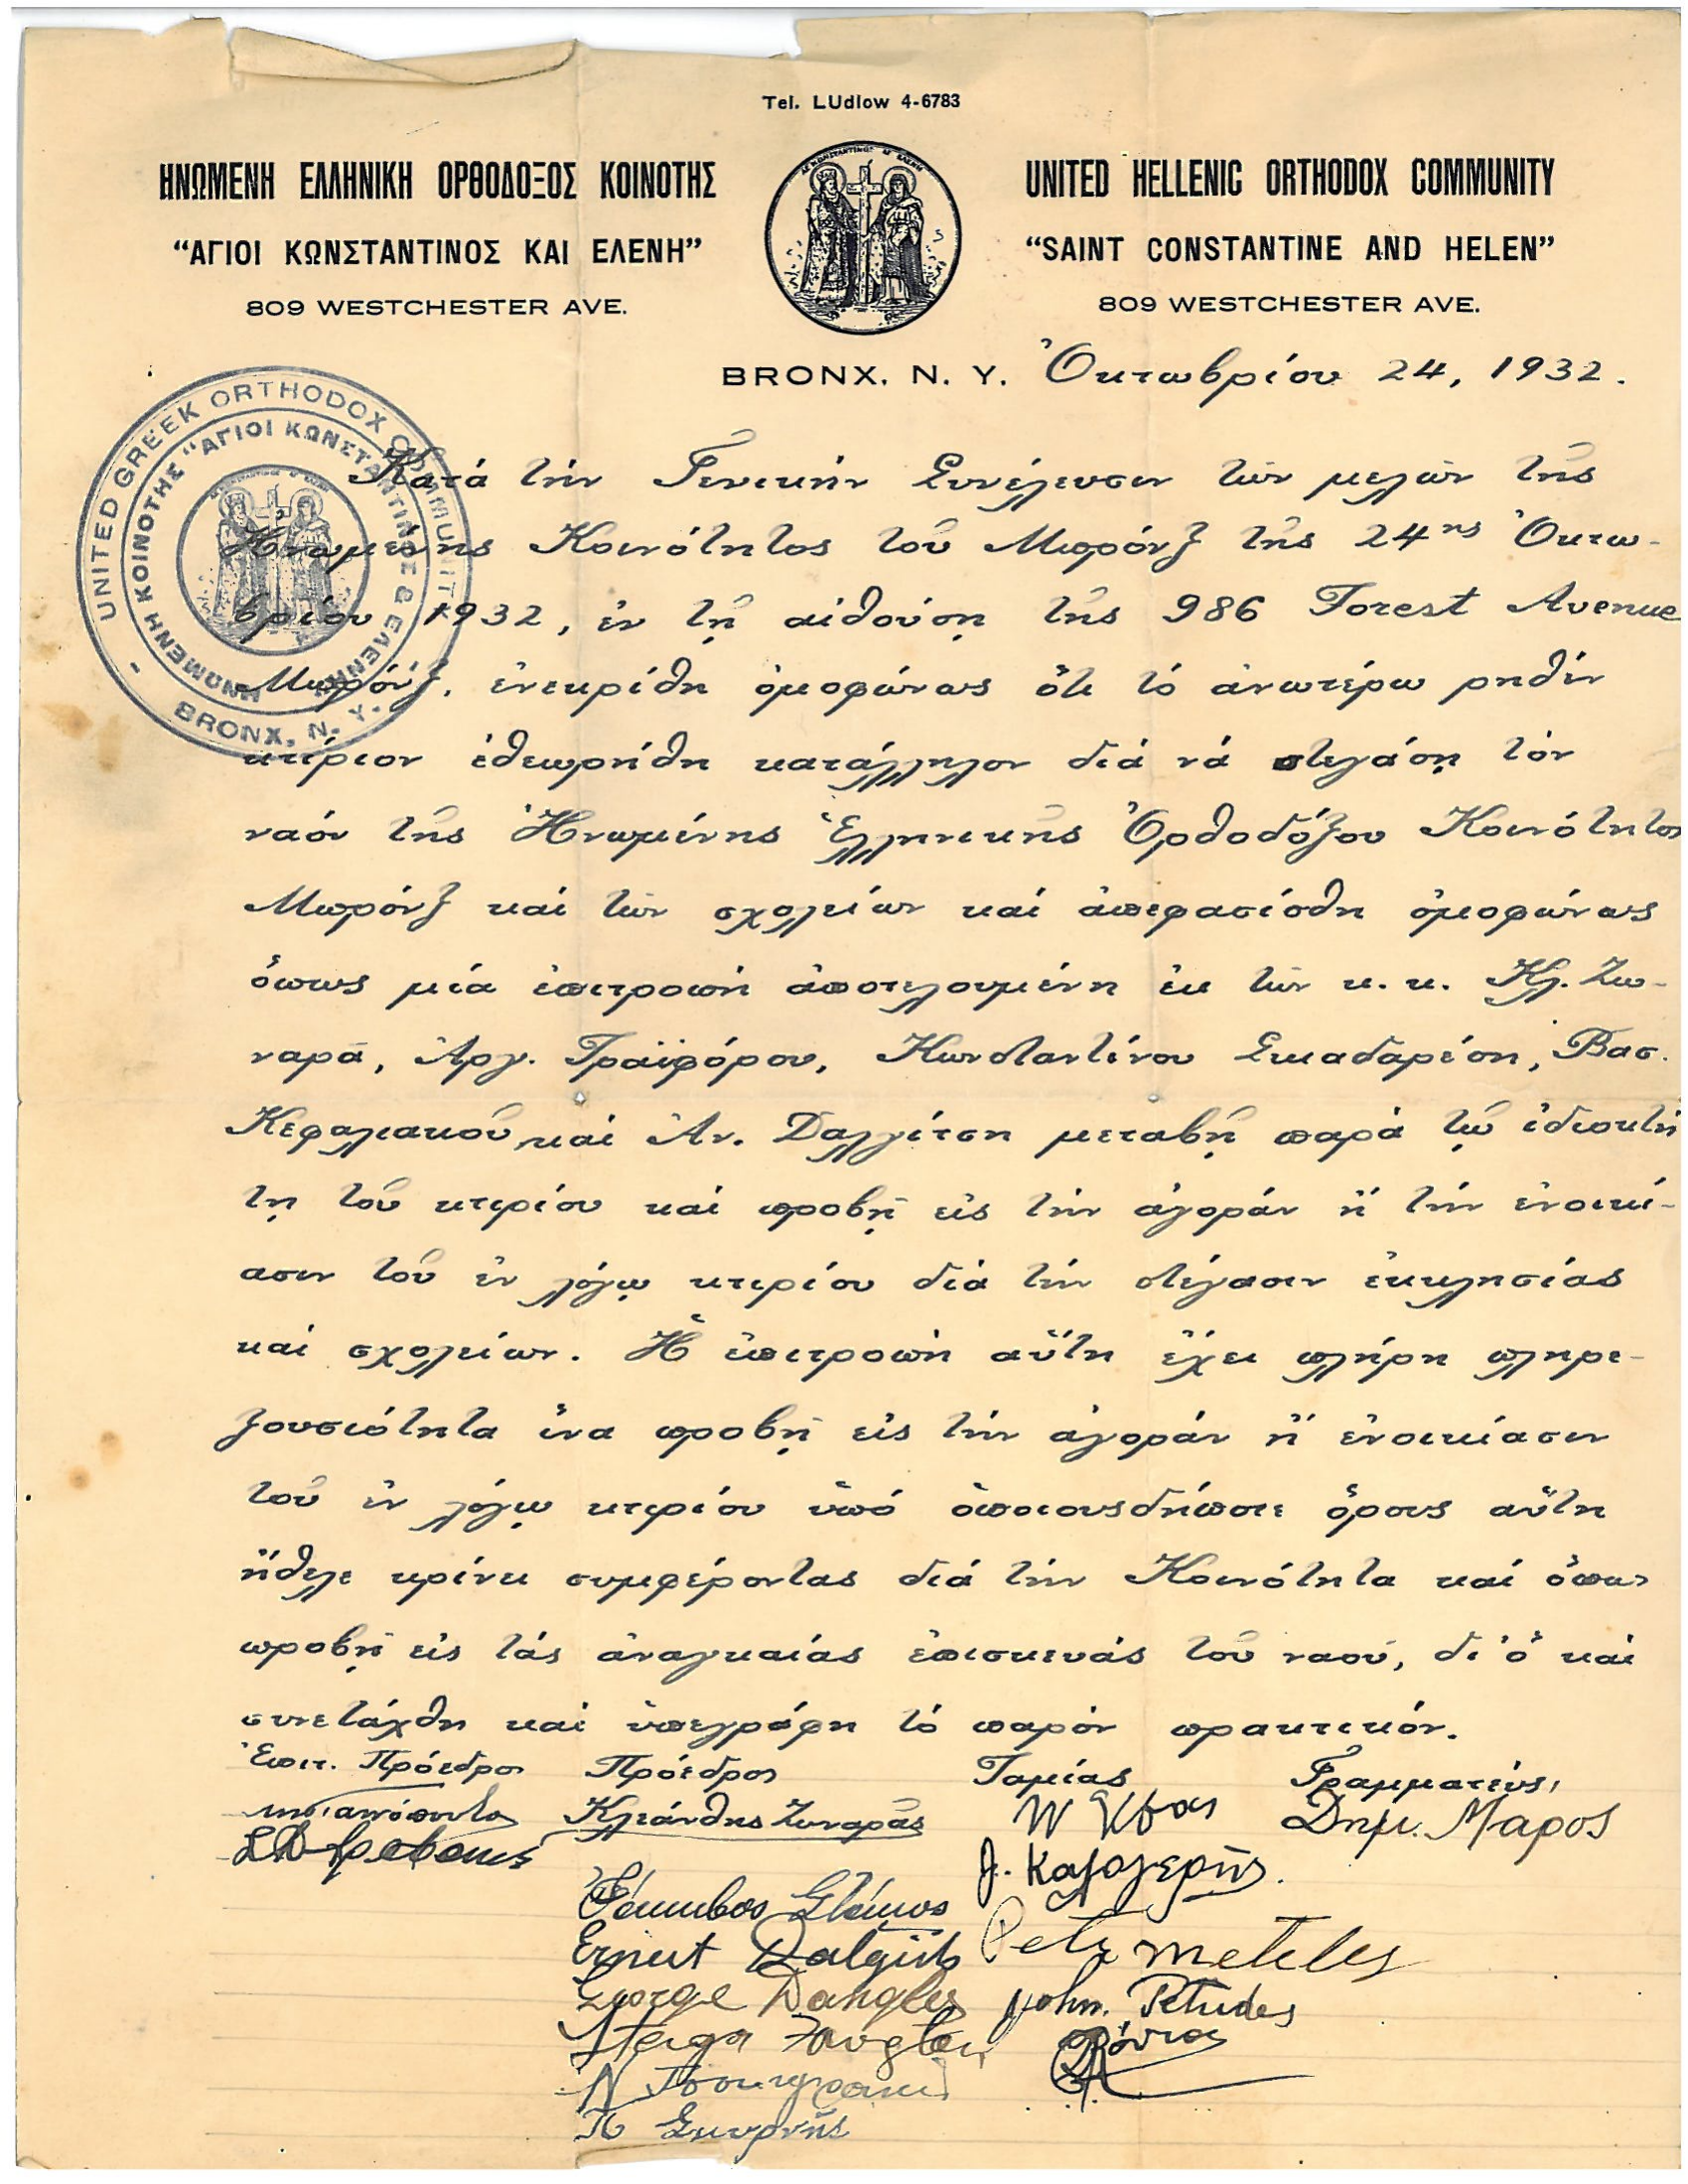 Tel. LUdlow 4-6783
ΗΝΩΜΕΝΗ ΕΛΛΗΝΙΚΗ ΟΡΘΟΔΟΞΟΣ ΚΟΙΝΟΤΗΣ
“ΑΓΙΟΙ ΚΩΝΣΤΑΝΤΙΝΟΣ ΚΑΙ ΕΛΕΝΗ”
809 WESTCHESTER AVE.
UNITED HELLENIC ORTHODOX COMMUNITY
“SAINT CONSTANTINE AND HELEN”
809 WESTCHESTER AVE.
BRONX, N. Y. Ὀκτωβρίου 24, 1932.
UNITED GREEK ORTHODOX COMMUNITY
ΗΝΩΜΕΝΗ ΚΟΙΝΟΤΗΣ “ΑΓΙΟΙ ΚΩΝΣΤΑΝΤΙΝΟΣ & ΕΛΕΝΗ”
BRONX, N. Y.
Κατά τήν Γενικήν Συνέλευσιν τῶν μελῶν τῆς
Ἡνωμένης Κοινότητος τοῦ Μπρόνξ τῆς 24ης Ὀκτω-
βρίου 1932, ἐν τῇ αἰθούσῃ τῆς 986 Forest Avenue
Μπρόνξ, ἐνεκρίθη ὁμοφώνως ὅτι τό ἀνωτέρω ρηθέν
κτίριον ἐθεωρήθη κατάλληλον διά νά στεγάσῃ τόν
ναόν τῆς Ἡνωμένης Ἑλληνικῆς Ὀρθοδόξου Κοινότητος
Μπρόνξ καί τῶν σχολείων καί ἀπεφασίσθη ὁμοφώνως
ὅπως μία ἐπιτροπή ἀποτελουμένη ἐκ τῶν κ. κ. Κλ. Ζω-
ναρᾶ, Ἀργ. Γραϊφόρου, Κωνσταντίνου Σκαδαρέση, Βασ.
Κεφαλιακοῦ καί Ἀν. Δαλγίτση μεταβῇ παρά τῷ ἰδιοκτή
τῃ τοῦ κτιρίου καί προβῇ εἰς τήν ἀγοράν ἤ τήν ἐνοικί-
ασιν τοῦ ἐν λόγῳ κτιρίου διά τήν στέγασιν ἐκκλησίας
καί σχολείων. Ἡ ἐπιτροπή αὕτη ἔχει πλήρη πληρε-
ξουσιότητα ἵνα προβῇ εἰς τήν ἀγοράν ἤ ἐνοικίασιν
τοῦ ἐν λόγῳ κτιρίου ὑπό ὁποιουσδήποτε ὅρους αὕτη
ἤθελε κρίνει συμφέροντας διά τήν Κοινότητα καί ὅπως
προβῇ εἰς τάς ἀναγκαίας ἐπισκευάς τοῦ ναοῦ, δι' ὅ καί
συνετάχθη καί ὑπεγράφη τό παρόν πρακτικόν.
Ἐπιτ. Πρόεδρος Πρόεδρος Ταμίας Γραμματεύς,
Κλεάνθης Ζωναρᾶς
Δημ. Μαρος
Καλογερῆς.
Ἰάκωβος Στάμος
Ernest Dalgitis
George Dangles
John
Π Σμυρνῆς